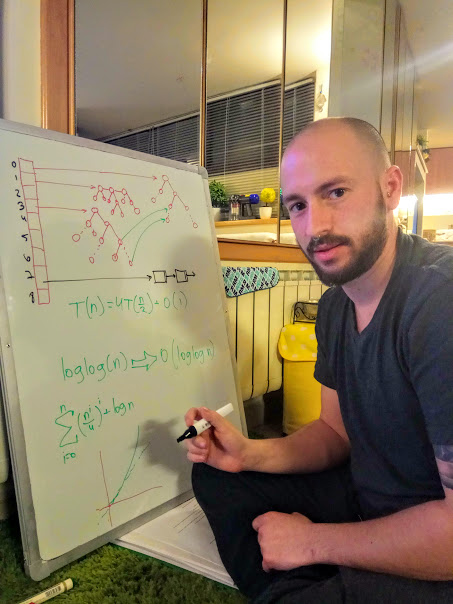 0
1
2
3
4
5
6
7
8
T(n)=4T(n/2)+O(1)
loglog(n) ⇨ O(loglog n)
n
∑ (n^i/4)^i + logn
i=0